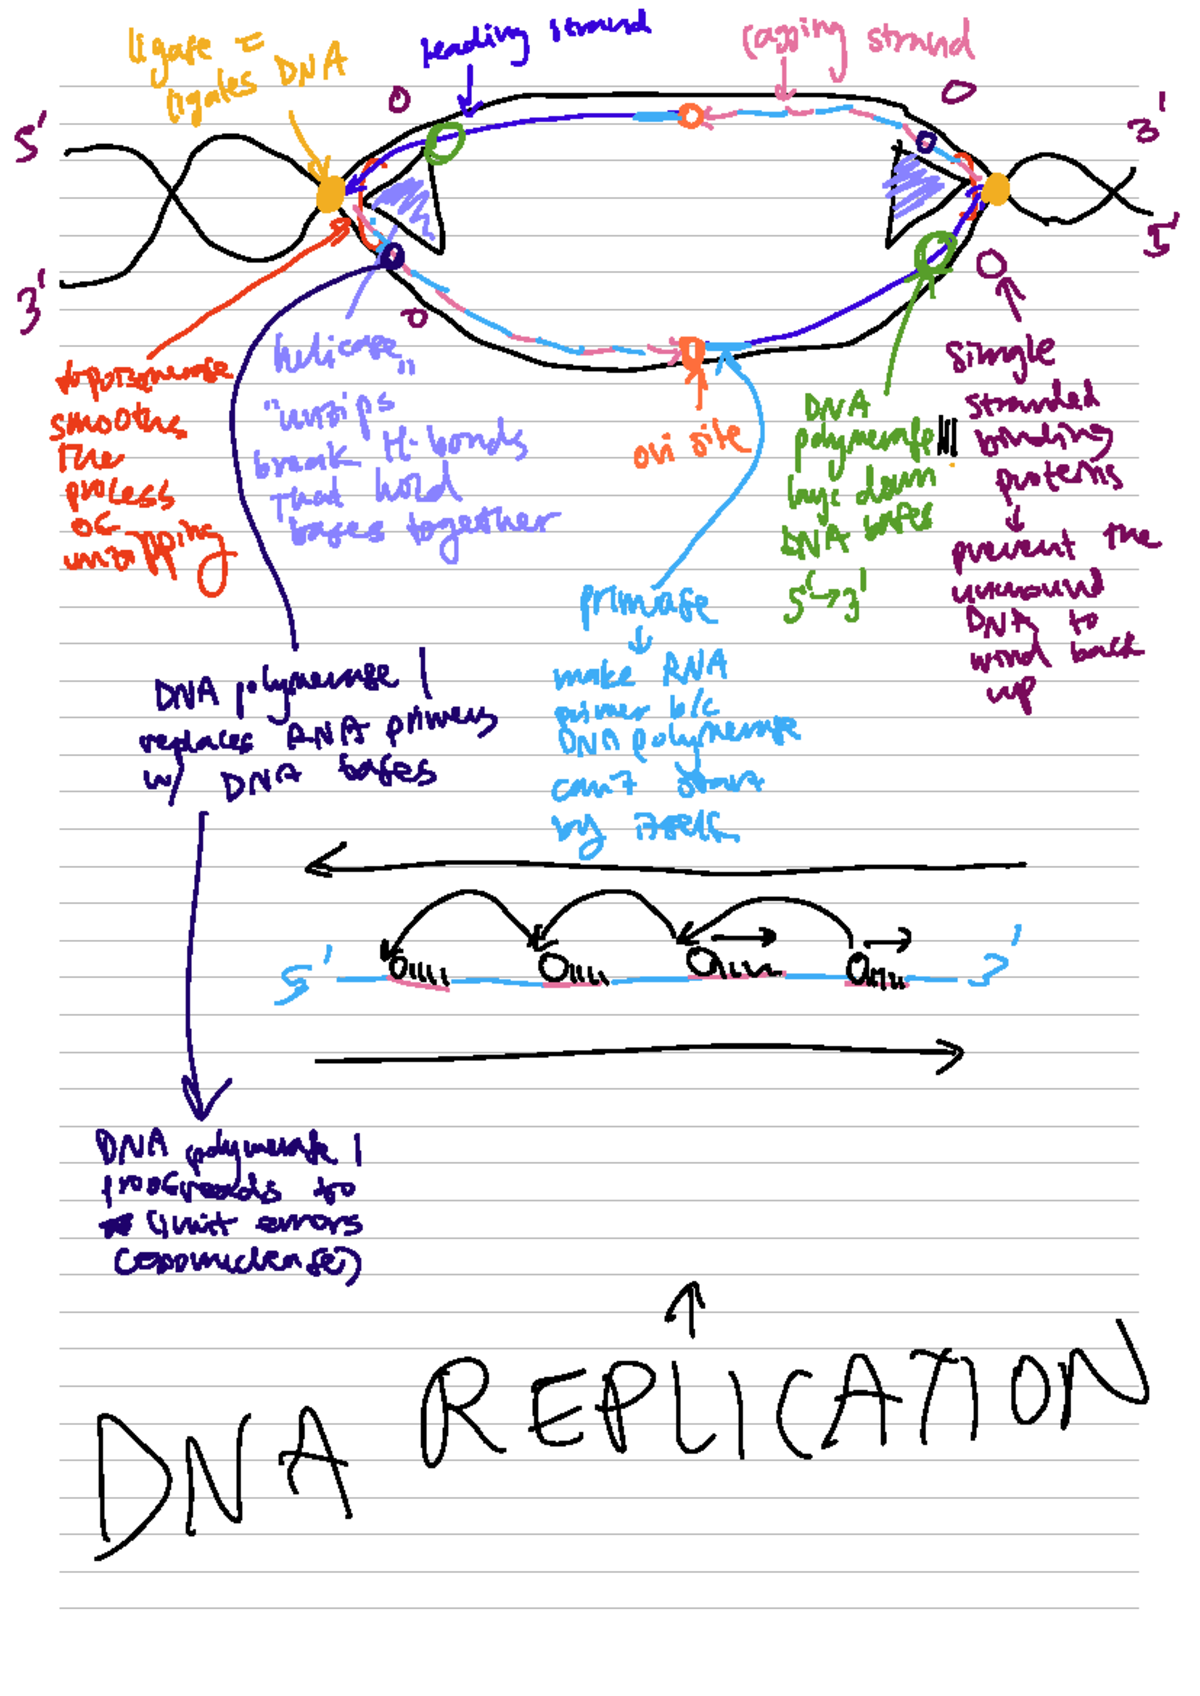 ligase =
ligates DNA
leading strand
lagging strand
5'
3'
3'
5'
topoisomerase
smoothes
the
process
of
unzipping
helicase
"unzips"
break H-bonds
that hold
bases together
ori site
DNA
polymerase III
lays down
DNA bases
5'→3'
single
stranded
binding
proteins
↓
prevent the
unwound
DNA to
wind back
up
primase
↓
make RNA
primer b/c
DNA polymerase
can't start
by itself
DNA polymerase I
replaces RNA primers
w/ DNA bases
5'
3'
DNA polymerase I
proofreads to
limit errors
(exonuclease)
DNA REPLICATION